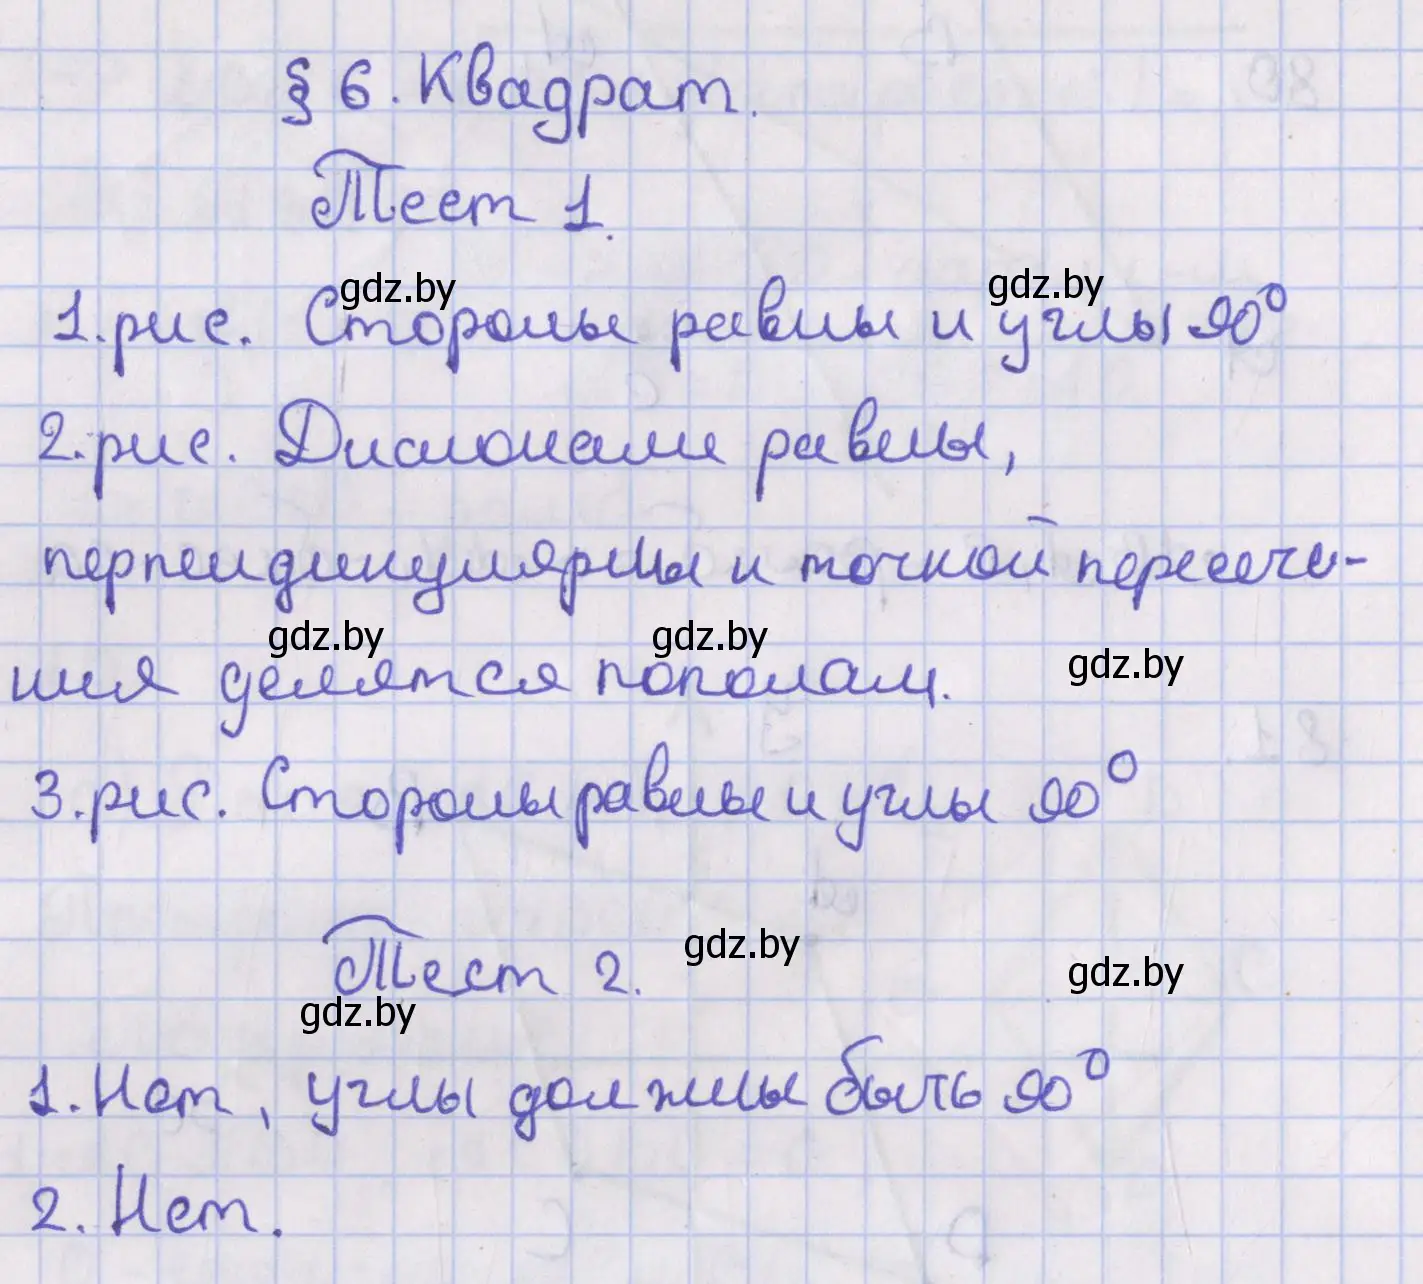 § 6. Квадрат.
Тест 1.
gdz.by gdz.by
1. рис. Стороны равны и углы 90°
2. рис. Диагонали равны,
перпендикулярны и точкой пересече-
gdz.by gdz.by gdz.by
ния делятся пополам.
3. рис. Стороны равны и углы 90°
gdz.by
Тест 2.
gdz.by
gdz.by
1. Нет, углы должны быть 90°
2. Нет.